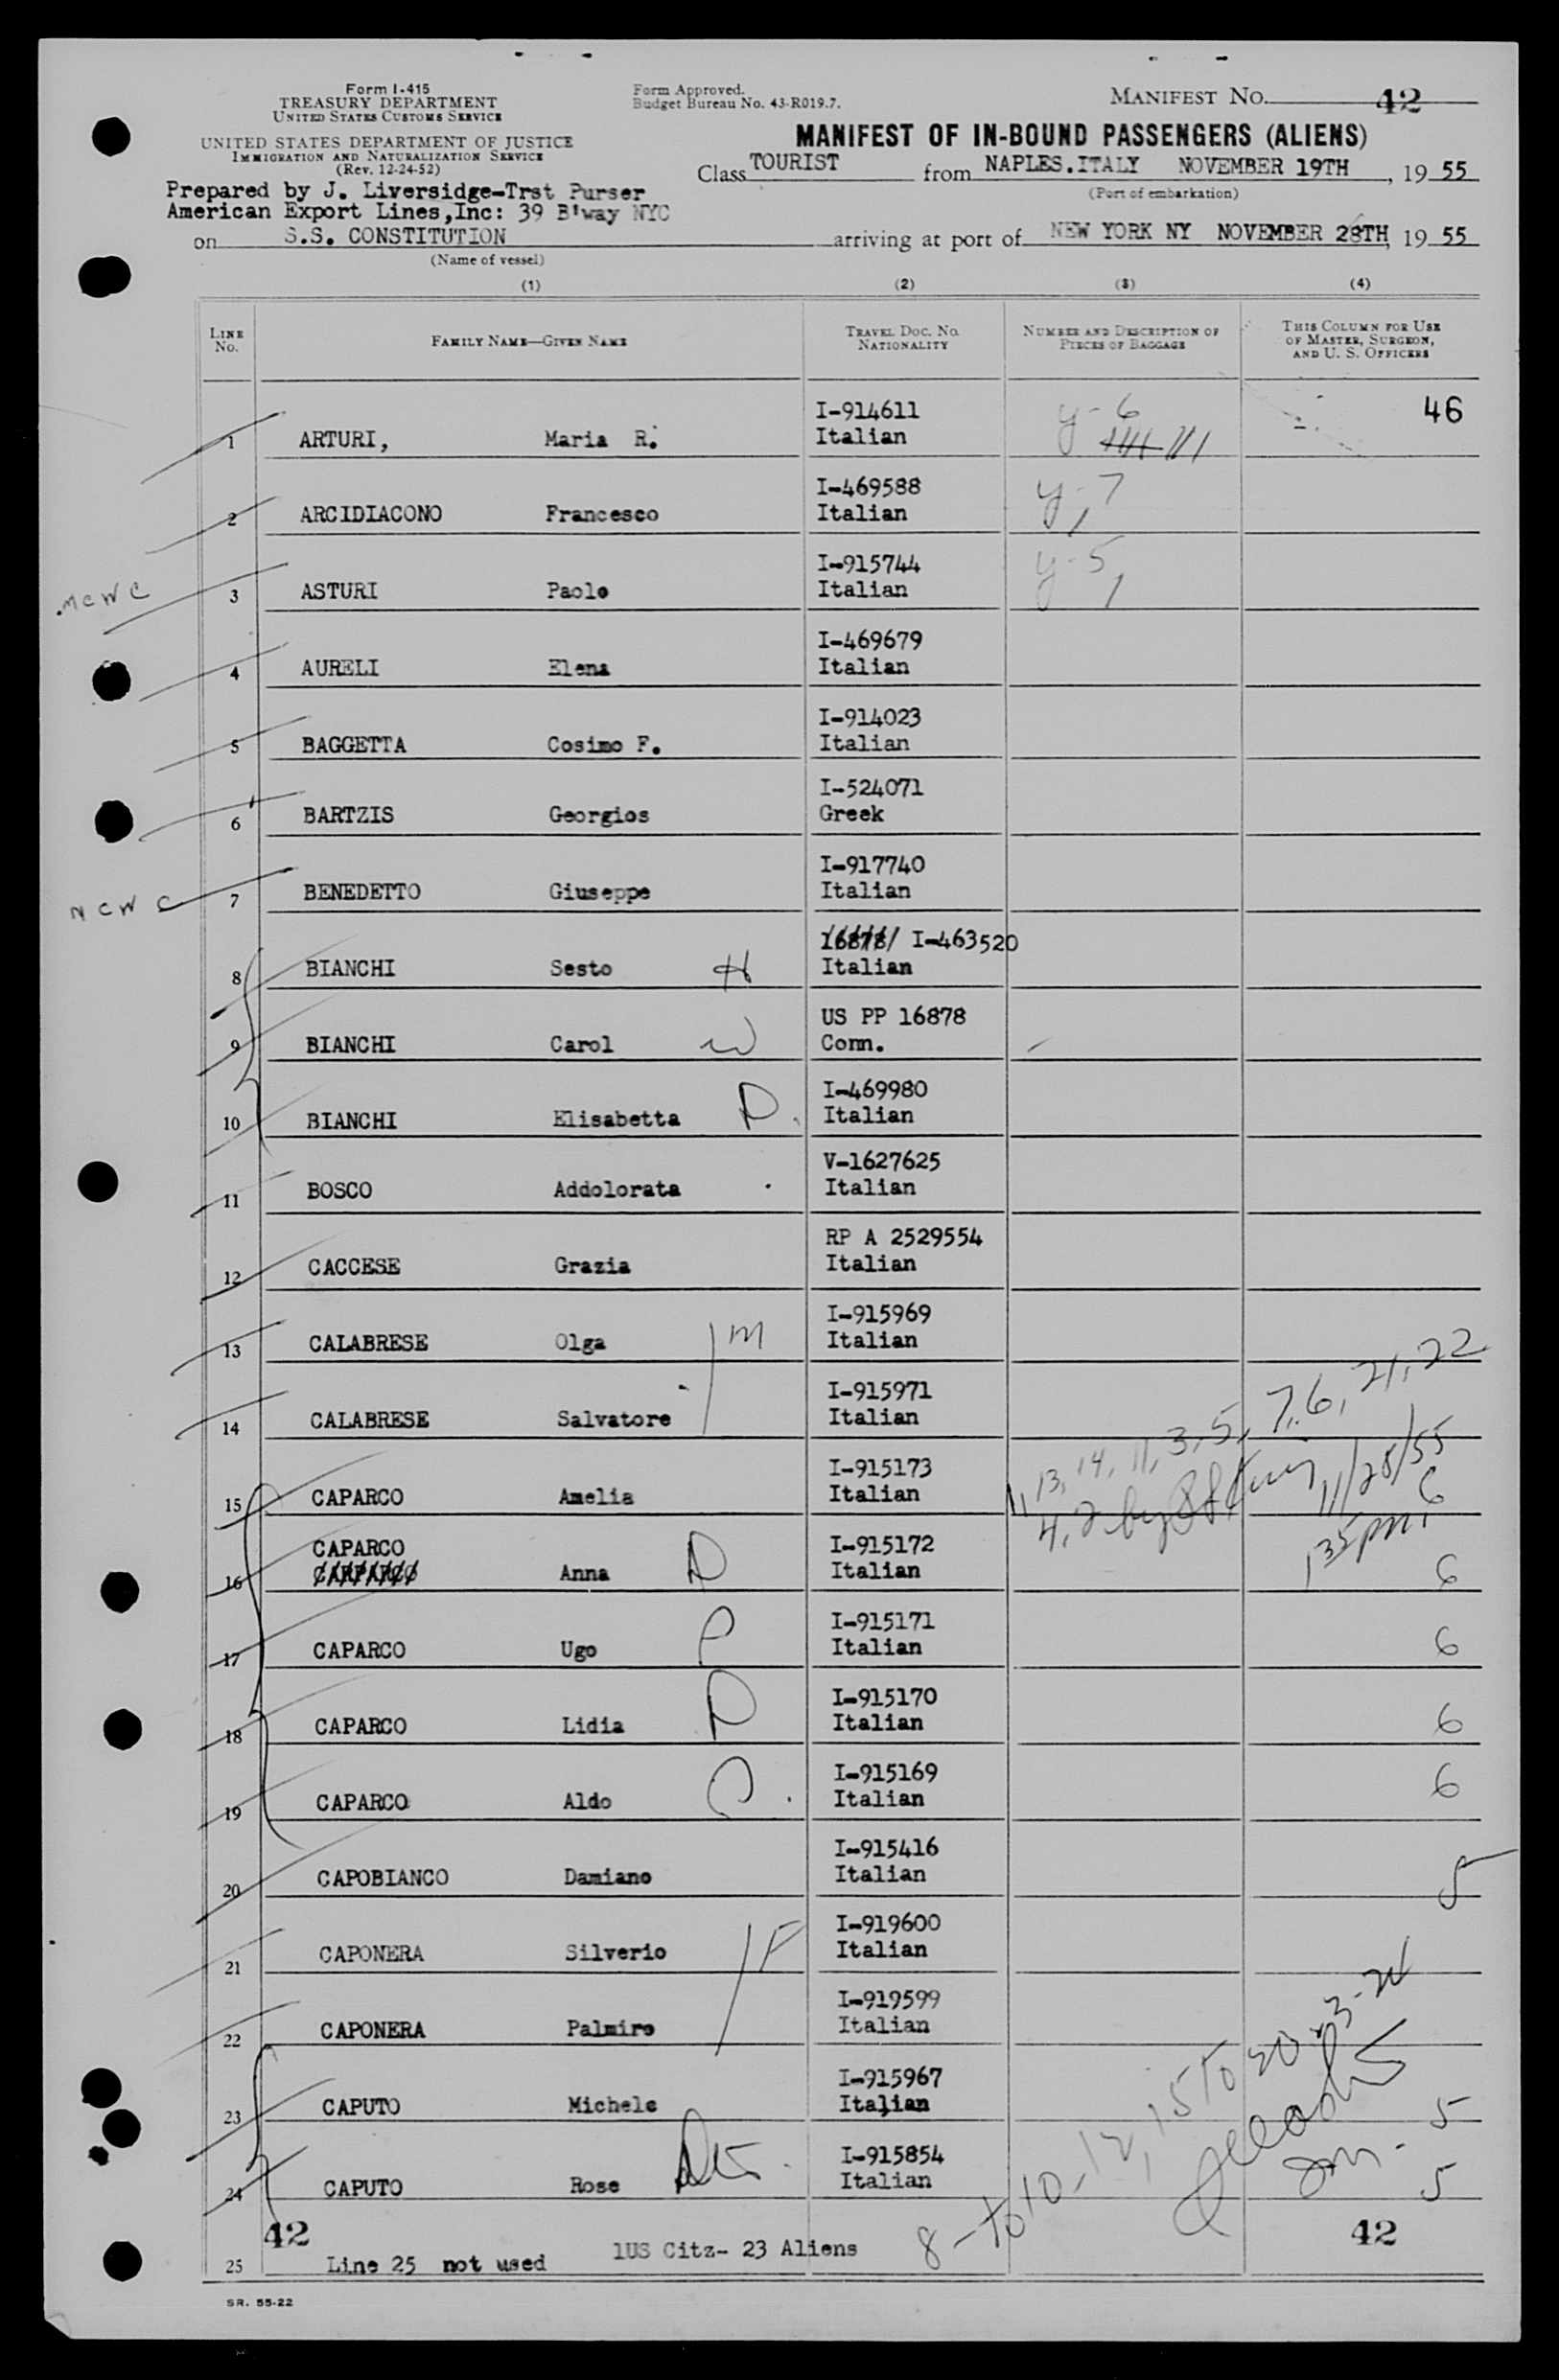 Form I-415
TREASURY DEPARTMENT
UNITED STATES CUSTOMS SERVICE
UNITED STATES DEPARTMENT OF JUSTICE
IMMIGRATION AND NATURALIZATION SERVICE
(Rev. 12-24-52)
Prepared by J. Liversidge-Trst Purser
American Export Lines,Inc: 39 B'way NYC
Form Approved.
Budget Bureau No. 43-R019.7.
MANIFEST NO. 42
MANIFEST OF IN-BOUND PASSENGERS (ALIENS)
Class TOURIST from NAPLES.ITALY NOVEMBER 19TH, 19 55
(Port of embarkation)
on S.S. CONSTITUTION arriving at port of NEW YORK NY NOVEMBER 28TH, 19 55
(Name of vessel)
(1) (2) (3) (4)
LINE NO. FAMILY NAME—GIVEN NAME TRAVEL DOC. NO. NATIONALITY NUMBER AND DESCRIPTION OF PIECES OF BAGGAGE THIS COLUMN FOR USE OF MASTER, SURGEON, AND U. S. OFFICERS
I-914611 y-6 46
1 ARTURI, Maria R. Italian
I-469588 y-7
2 ARCIDIACONO Francesco Italian
I-915744 y-5
MCWC 3 ASTURI Paolo Italian
I-469679
4 AURELI Elena Italian
I-914023
5 BAGGETTA Cosimo F. Italian
I-524071
6 BARTZIS Georgios Greek
I-917740
NCWC 7 BENEDETTO Giuseppe Italian
16878 I-463520
8 BIANCHI Sesto H Italian
US PP 16878
9 BIANCHI Carol W Conn.
I-469980
10 BIANCHI Elisabetta D. Italian
V-1627625
11 BOSCO Addolorata Italian
RP A 2529554
12 CACCESE Grazia Italian
I-915969
13 CALABRESE Olga M Italian
I-915971
14 CALABRESE Salvatore Italian
13, 14, 11, 3, 5, 7, 6, 21, 22
4, 2 by 11/28/55
135 pm
I-915173
15 CAPARCO Amelia Italian 6
CAPARCO I-915172
16 CARPARCO Anna D Italian 6
I-915171
17 CAPARCO Ugo Italian 6
I-915170
18 CAPARCO Lidia D Italian 6
I-915169
19 CAPARCO Aldo Italian 6
I-915416
20 CAPOBIANCO Damiano Italian 5
I-919600
21 CAPONERA Silverio F Italian
I-919599
22 CAPONERA Palmiro Italian
I-915967
23 CAPUTO Michele Italian 5
I-915854
24 CAPUTO Rose Italian 5
8-to 10-12, 15 to 20
42 42
25 Line 25 not used 1US Citz- 23 Aliens
SR. 55-22